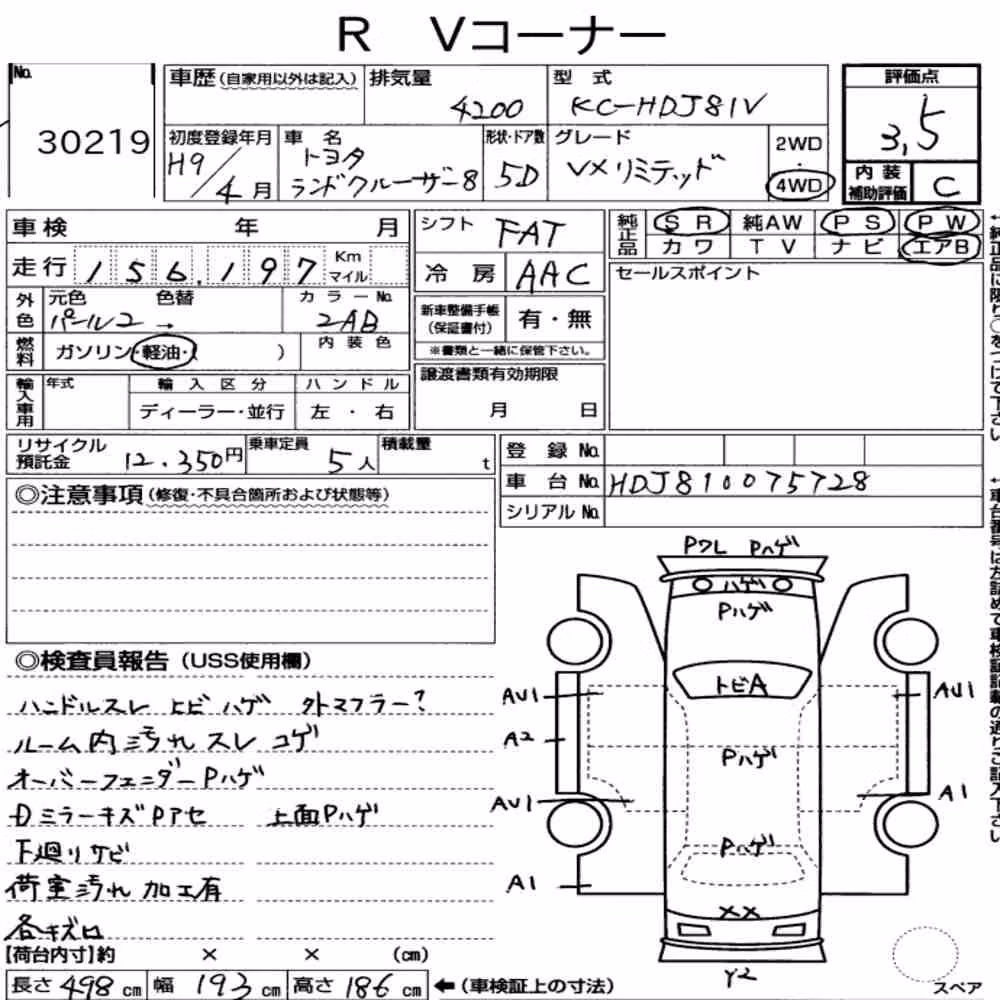 R Vコーナー
No. 30219
車歴(自家用以外は記入) 排気量 4200 型式 KC-HDJ81V 評価点 3,5
初度登録年月 H9/4月 車名 トヨタ ランドクルーザー8 形状・ドア数 5D グレード VXリミテッド 2WD 4WD 内装補助評価 C
車検 年 月
走行 156,197 Km マイル
外色 元色 パール2 色替 → カラーNo. 2AB
燃料 ガソリン・軽油・( ) 内装色
輸入車用 年式 輸入区分 ディーラー・並行 ハンドル 左・右
シフト FAT
冷房 AAC
新車整備手帳(保証書付) 有・無
※書類と一緒に保管下さい。
譲渡書類有効期限
月 日
純正品 SR 純AW PS PW
カワ TV ナビ エアB
セールスポイント
リサイクル預託金 12.350円 乗車定員 5人 積載量 t
登録No.
車台No. HDJ810075728
シリアルNo.
◎注意事項(修復・不具合箇所および状態等)
◎検査員報告(USS使用欄)
ハンドルスレ ヒビ ハゲ 外マフラー?
ルーム内汚れ スレ コゲ
オーバーフェンダーPハゲ
Dミラーキズ Pアセ 上面Pハゲ
下廻りサビ
荷室汚れ 加工有
各キズロ
【荷台内寸】約 × × (cm)
長さ 498 cm 幅 193 cm 高さ 186 cm ←(車検証上の寸法)
PワレPハゲ
ハゲ
Pハゲ
トビA
AU1
AU1
A2
Pハゲ
AU1
A1
Pハゲ
A1
××
Y2
スペア